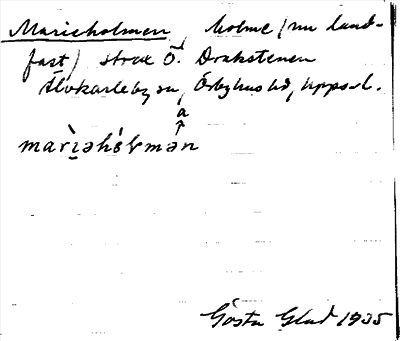 Marieholmen, holme (nu land-
fast) strax Ö. Drakstenen
Älvkarleby sn, Örbyhus hd, Upps. l.
a
marìəhól̥mən
Gösta Glad 1935